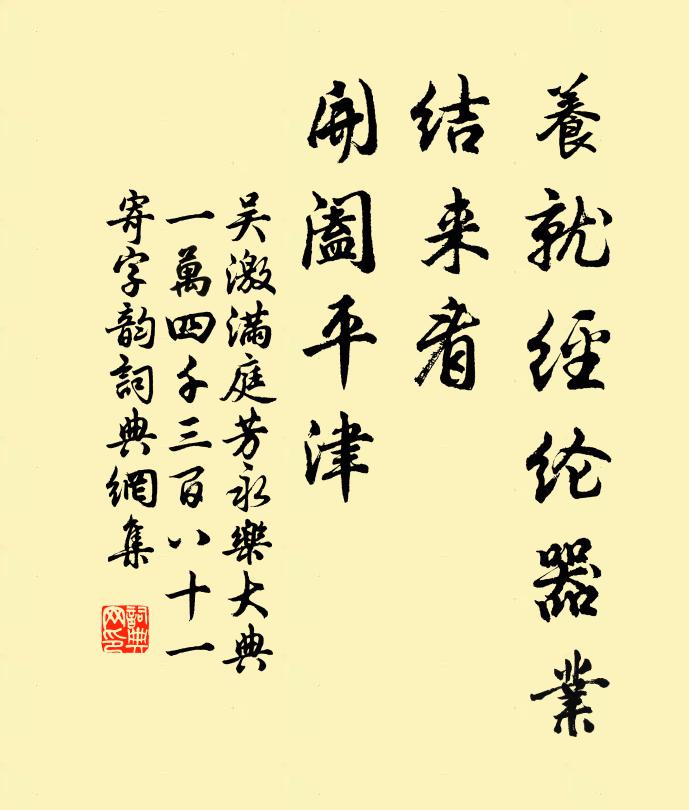 養就經纶器業
结来看
開阖平津
吴激滿庭芳永樂大典
一萬四千三百八十一
寄字韵詞典網集
詞典网印